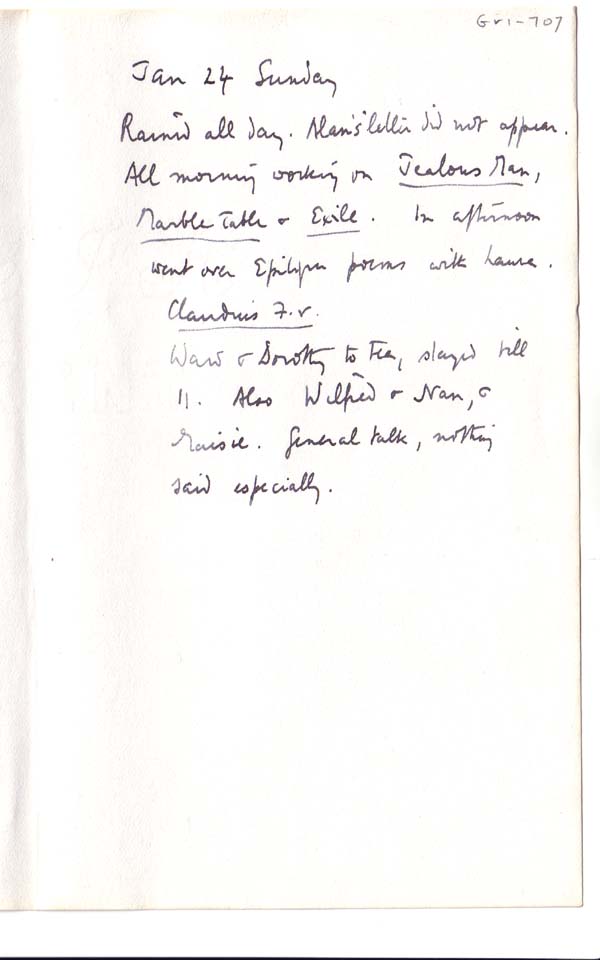 GrI-707
Jan 24 Sunday
Rained all day. Alan's letter did not appear.
All morning working on Jealous Man,
Marble Table & Exile. In afternoon
went over Epilogue poems with Laura.
Claudius F.r.
Ward & Dorothy to tea, stayed till
11. Also Wilfred & Nan, &
Maisie. General talk, nothing
said especially.